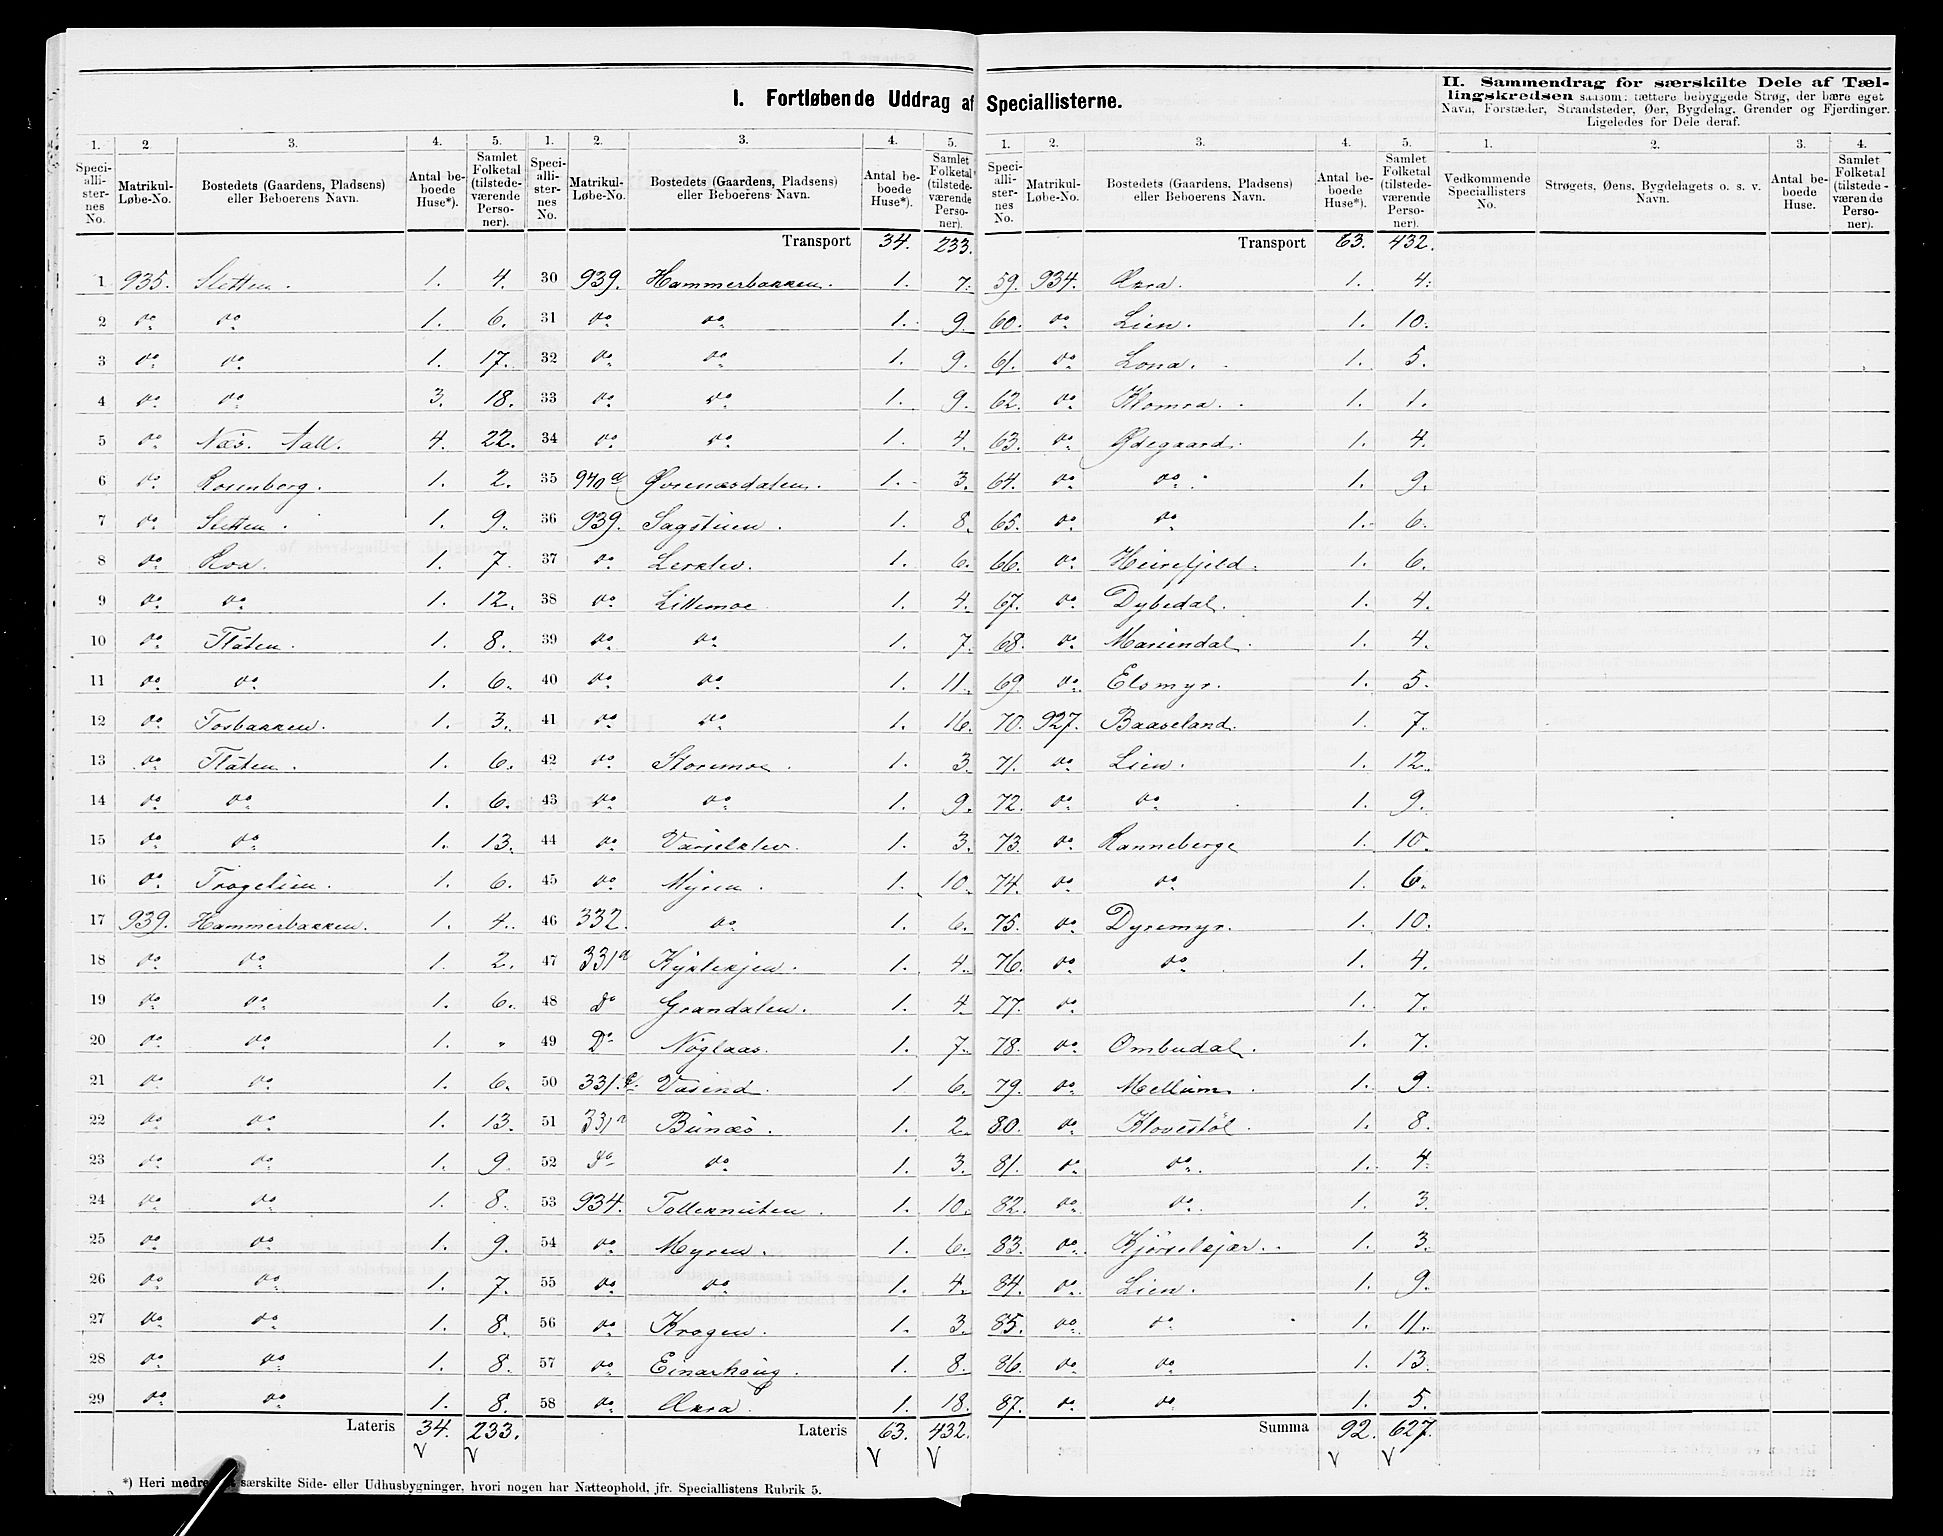 I. Fortløbende Uddrag af Speciallisterne.
II. Sammendrag for særskilte Dele af Tællingskredsen saasom: tættere bebyggede Strøg, der bære eget Navn, Forstæder, Strandsteder, Øer, Bygdelag, Grender og Fjerdinger. Ligeledes for Dele deraf.
1. 2. 3. 4. 5. 1. 2. 3. 4. 5. 1. 2. 3. 4. 5. 1. 2. 3. 4.
Speciallisternes No. Matrikul-Løbe-No. Bostedets (Gaardens, Pladsens) eller Beboerens Navn. Antal beboede Huse*). Samlet Folketal (tilstedeværende Personer).
Speciallisternes No. Matrikul-Løbe-No. Bostedets (Gaardens, Pladsens) eller Beboerens Navn. Antal beboede Huse*). Samlet Folketal (tilstedeværende Personer).
Speciallisternes No. Matrikul-Løbe-No. Bostedets (Gaardens, Pladsens) eller Beboerens Navn. Antal beboede Huse*). Samlet Folketal (tilstedeværende Personer).
Vedkommende Speciallisters No. Strøgets, Øens, Bygdelagets o. s. v. Navn. Antal beboede Huse. Samlet Folketal (tilstedeværende Personer).
1 935. Sletten. 1. 4.
2 do do 1. 6.
3 do do 1. 17.
4 do do 3. 18.
5 do Næs. Aall. 4. 22.
6 do Rosenberg. 1. 2.
7 do Sletten. 1. 9.
8 do Roa. 1. 7.
9 do do 1. 12.
10 do Flåten. 1. 8.
11 do do 1. 6.
12 do Fosbakken. 1. 3.
13 do Flåten. 1. 6.
14 do do 1. 6.
15 do do 1. 13.
16 do Trogelien. 1. 6.
17 939. Hammerbakken. 1. 4.
18 do do 1. 2.
19 do do 1. 6.
20 do do 1. "
21 do do 1. 6.
22 do do 1. 13.
23 do do 1. 9.
24 do do 1. 8.
25 do do 1. 9.
26 do do 1. 7.
27 do do 1. 8.
28 do do 1. 8.
29 do do 1. 8.
Lateris 34. 233.
V V
Transport 34. 233.
30 939. Hammerbakken. 1. 7.
31 do do 1. 9.
32 do do 1. 9.
33 do do 1. 9.
34 do do 1. 4.
35 940a Øvrenæsdalen. 1. 3.
36 939. Sagstuen. 1. 8.
37 do Lerklev. 1. 6.
38 do Lillemoe. 1. 4.
39 do do 1. 7.
40 do do 1. 11.
41 do do 1. 16.
42 do Storemoe. 1. 3.
43 do do 1. 9.
44 do Varselklev. 1. 3.
45 do Myren. 1. 10.
46 332. do 1. 6.
47 331a Kyklekjen. 1. 4.
48 Do Grandalen. 1. 4.
49 Do Nøglaas. 1. 7.
50 331. Vasend. 1 6.
51 331a Bunæs. 1. 2.
52 Do do 1. 3.
53 934. Tolleknuten. 1. 10.
54 do Myren. 1. 6.
55 do do 1. 4.
56 do Krogen. 1. 3.
57 do Einarhaug. 1. 8.
58 do Økra. 1. 18.
Lateris 63. 432.
V V
Transport 63. 432.
59. 934. Økra. 1. 4.
60. do Lien. 1. 10.
61. do Lona. 1. 5.
62. do Klomra. 1. 1.
63. do Ødegaard. 1. 4.
64. do do 1. 9.
65. do do 1. 6.
66. do Heirefjeld. 1. 6.
67. do Dybedal. 1. 4.
68. do Mariendal. 1. 4.
69. do Elsmyr. 1. 5.
70. 927. Baaseland. 1. 7.
71. do Lien. 1. 12.
72. do do 1. 9.
73. do Ranneberge 1. 10.
74. do do 1. 6.
75. do Dyremyr. 1. 10.
76. do do 1. 4.
77. do 1. 7.
78. do Ombudal. 1. 7.
79. do Mellum. 1. 9.
80. do Klovestøl. 1. 8.
81. do do 1. 4.
82. do do 1. 3.
83. do Kjørselkjær. 1. 3.
84. do Lien. 1. 9.
85. do do 1. 11.
86. do do 1. 13.
87. do do 1. 5.
Summa 92. 627.
V V
*) Heri særskilte Side- eller Udhusbygninger, hvori nogen har Natteophold, jfr. Speciallistens Rubrik 5.